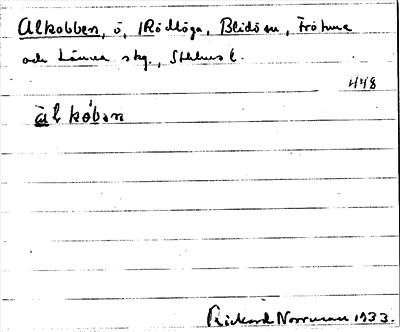 Alkobben, ö, Rödlöga, Blidö sn, Frötuna
och Länna skg., Sthlms l.
448
ȧl kobən
Rickard Norrman 1933.